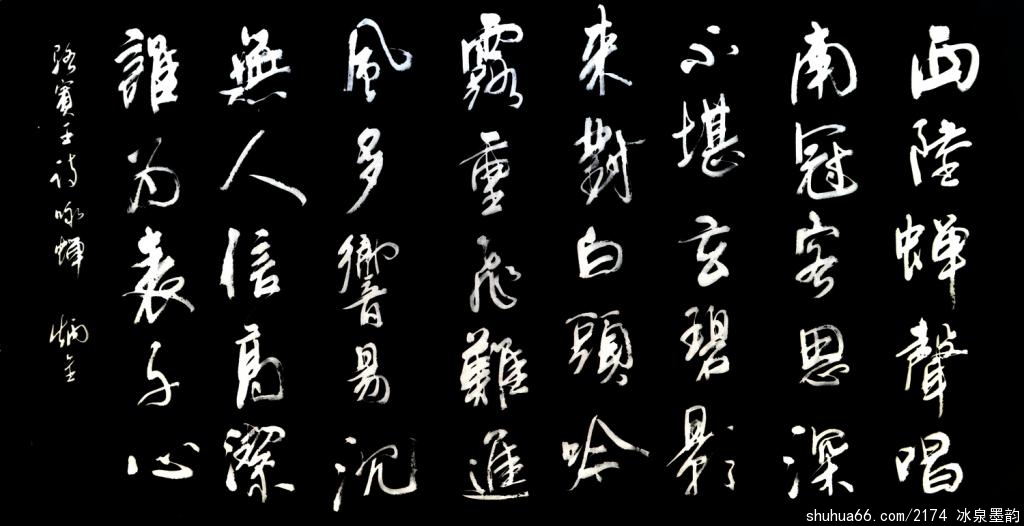 西陸蝉聲唱
南冠客思深
不堪玄碧影
來對白頭吟
露重飛難進
風多響易沉
無人信高潔
誰为表予心
骆賓王诗咏蝉 炳金
shuhua66.com/2174 冰泉墨韵